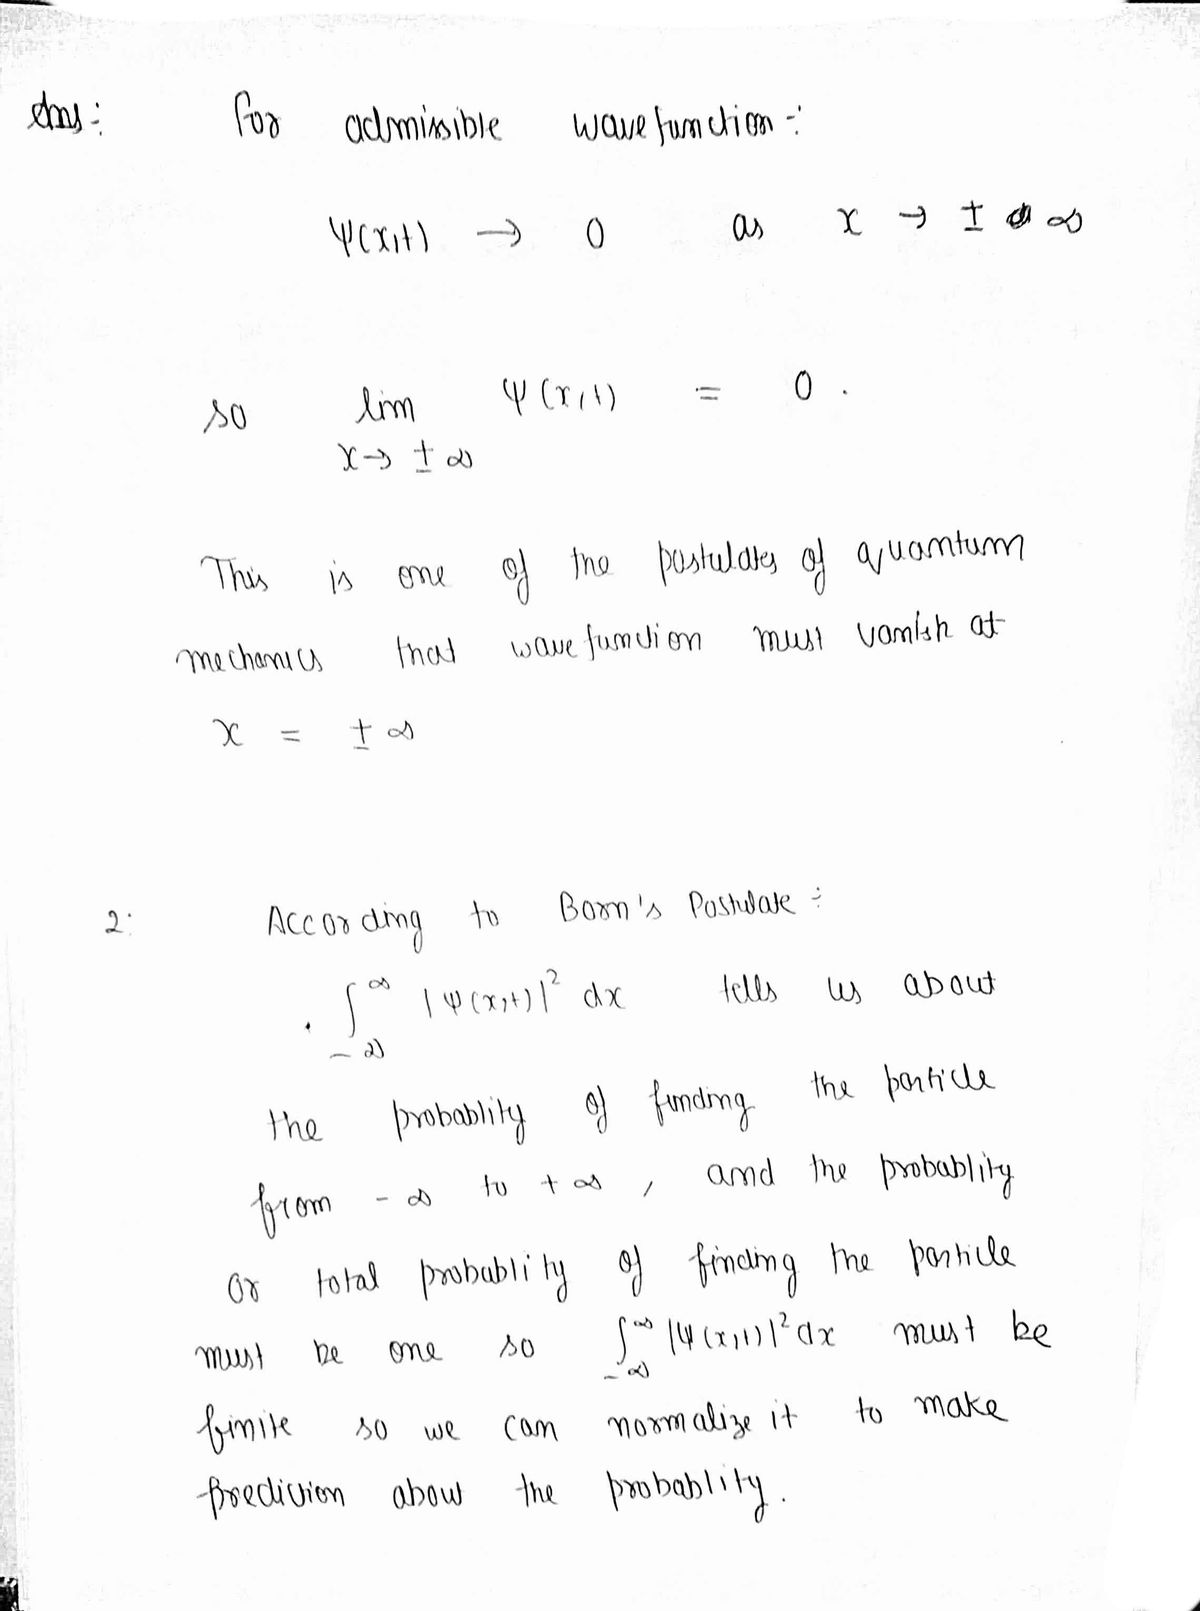 Ans:
For admissible wavefunction:-
Ψ(x,t) → 0 as x → ± ∞
so lim Ψ(x,t) = 0.
x→ ± ∞
This is one of the postulates of quantum
mechanics that wavefunction must vanish at
x = ± ∞
2: According to Born's Postulate:
∫ ∞ -∞ |Ψ(x,t)|² dx tells us about
the probablity of finding the particle
from - ∞ to + ∞, and the probablity
or total probablity of finding the particle
must be one so ∫ ∞ -∞ |Ψ(x,t)|² dx must be
finite so we can normalize it to make
prediction about the probablity.